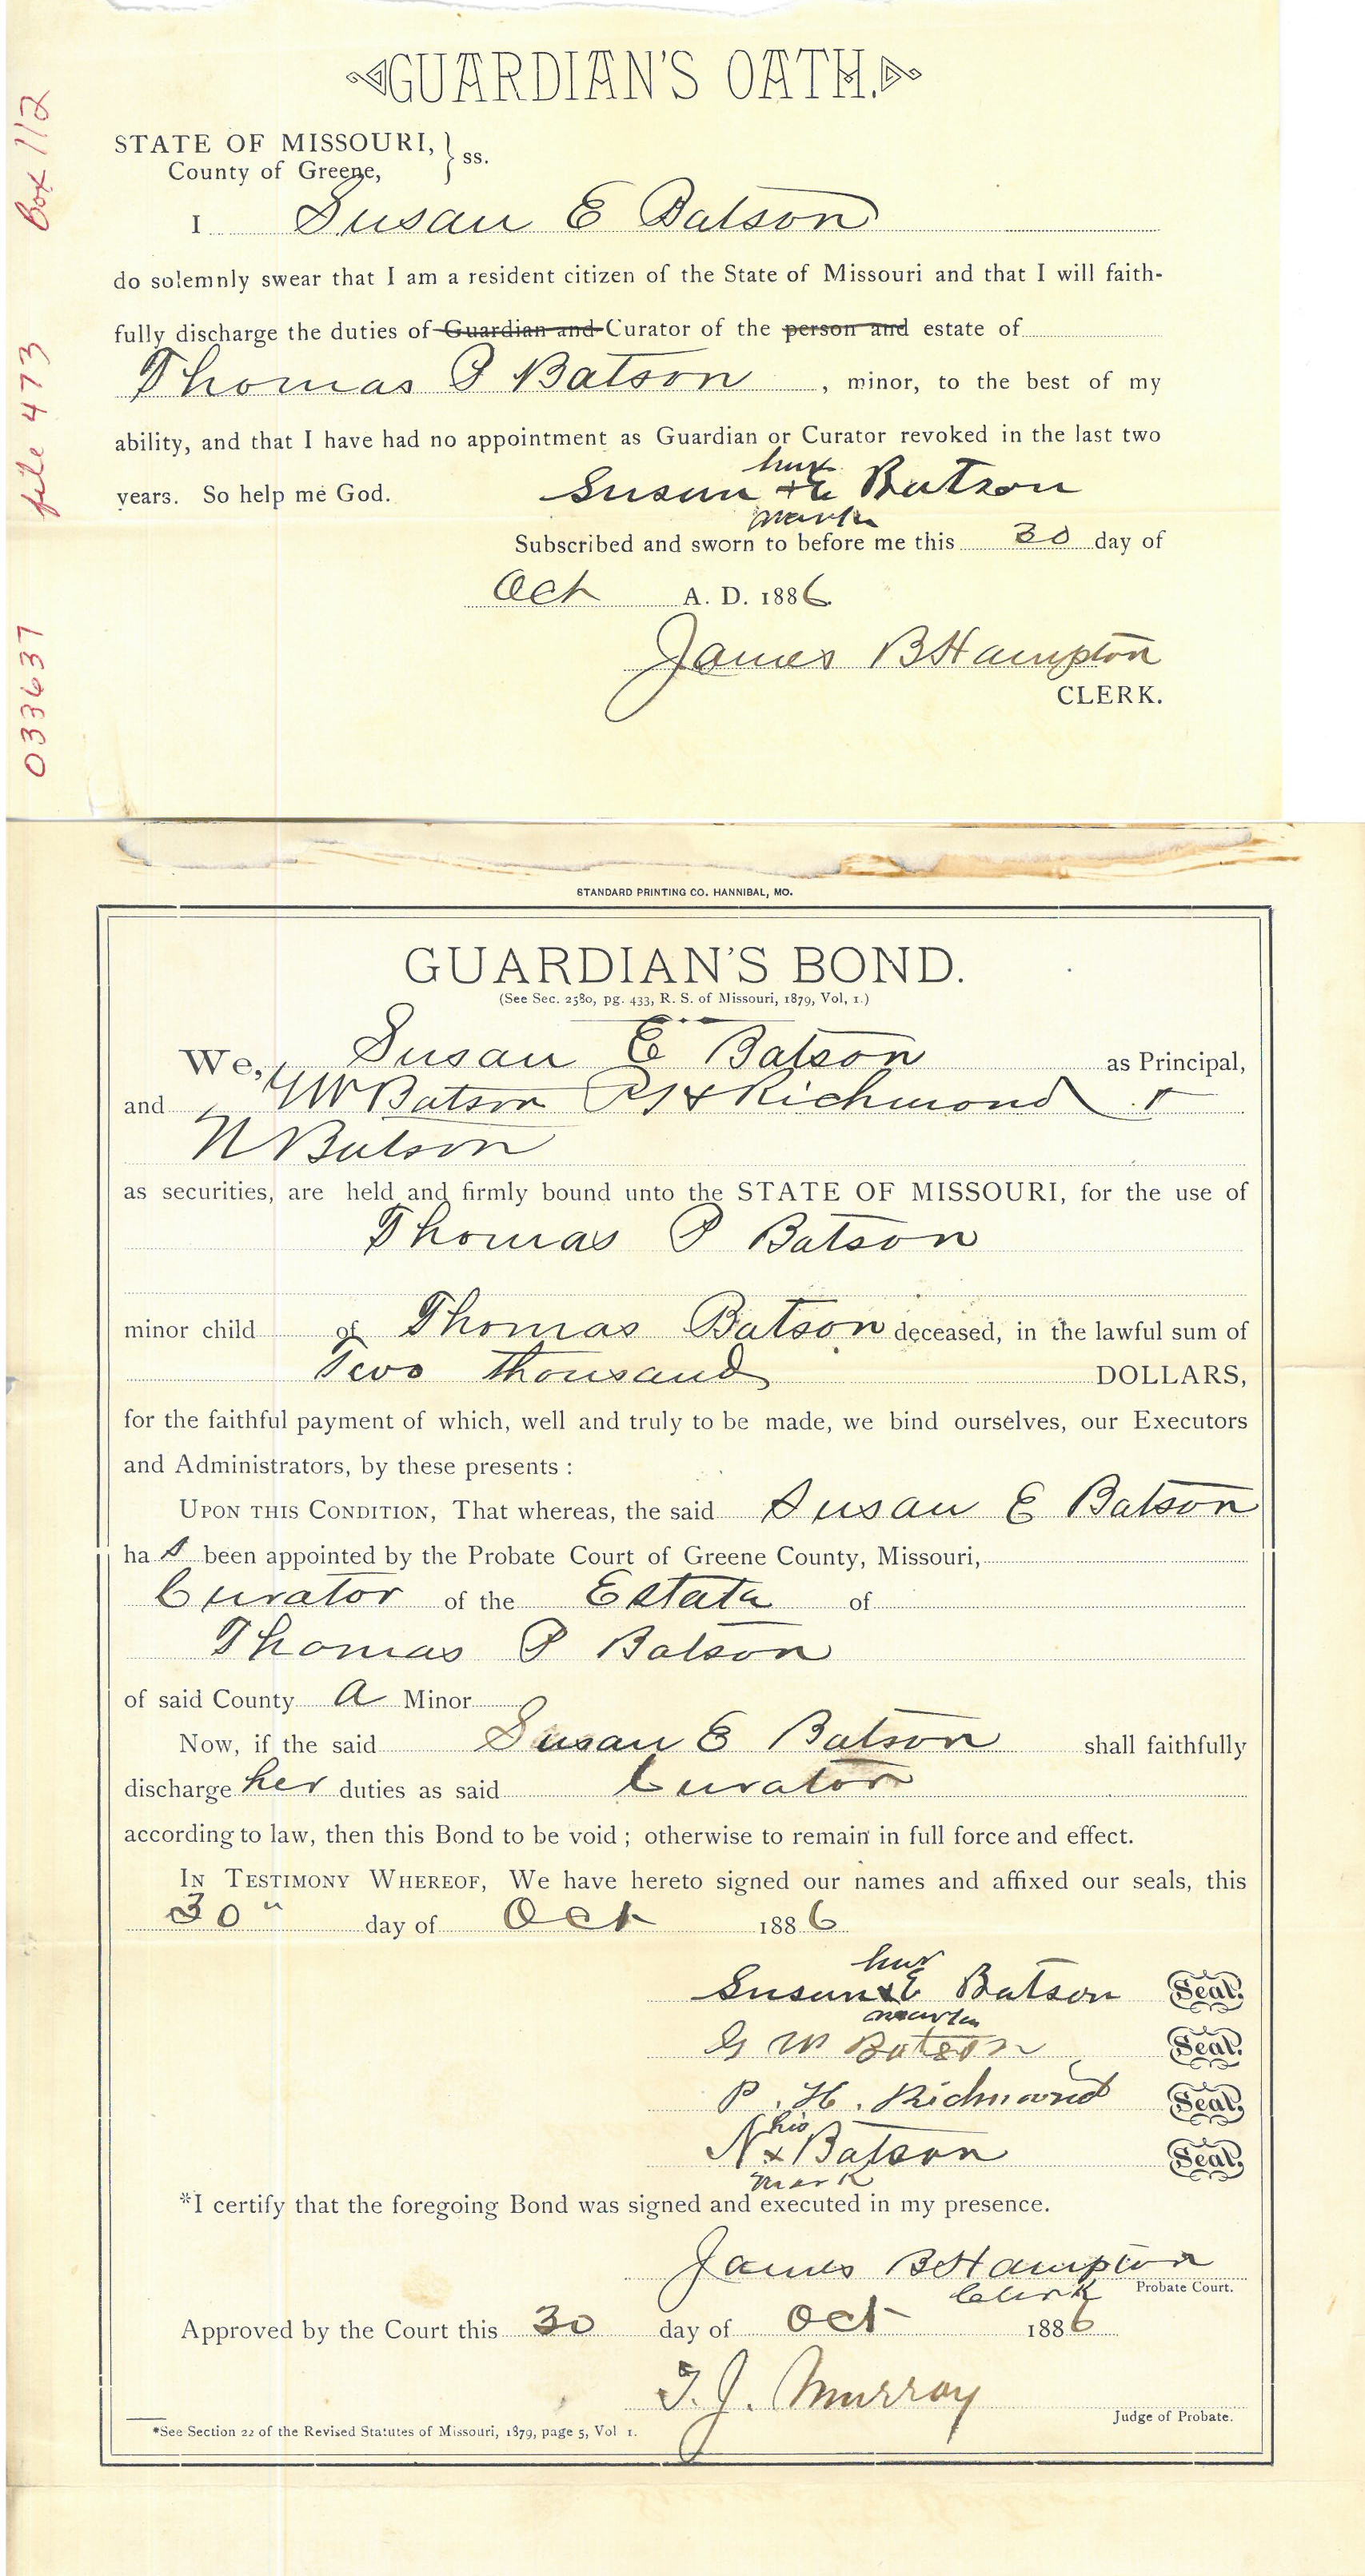 GUARDIAN'S OATH.
STATE OF MISSOURI, } ss.
County of Greene,
I Susan E Batson
do solemnly swear that I am a resident citizen of the State of Missouri and that I will faith-
fully discharge the duties of Guardian and Curator of the person and estate of
Thomas P Batson , minor, to the best of my
ability, and that I have had no appointment as Guardian or Curator revoked in the last two
her
years. So help me God. Susan + E Batson
mark
Subscribed and sworn to before me this 30 day of
Oct A. D. 1886
James B Hampton
CLERK.
033637 file 473 Box 112
STANDARD PRINTING CO. HANNIBAL, MO.
GUARDIAN'S BOND.
(See Sec. 2580, pg. 433, R. S. of Missouri, 1879, Vol, 1.)
We, Susan E Batson as Principal,
and G W Batson P H Richmond +
N Batson
as securities, are held and firmly bound unto the STATE OF MISSOURI, for the use of
Thomas P Batson
minor child of Thomas Batson deceased, in the lawful sum of
Two thousand DOLLARS,
for the faithful payment of which, well and truly to be made, we bind ourselves, our Executors
and Administrators, by these presents :
UPON THIS CONDITION, That whereas, the said Susan E Batson
has been appointed by the Probate Court of Greene County, Missouri,
Curator of the Estate of
Thomas P Batson
of said County a Minor
Now, if the said Susan E Batson shall faithfully
discharge her duties as said Curator
according to law, then this Bond to be void ; otherwise to remain in full force and effect.
IN TESTIMONY WHEREOF, We have hereto signed our names and affixed our seals, this
30" day of Oct 1886
her
Susan x E Batson Seal.
mark
G W Batson Seal.
P. H. Richmond Seal.
his
N x Batson Seal.
mark
*I certify that the foregoing Bond was signed and executed in my presence.
James B Hampton
Clerk Probate Court.
Approved by the Court this 30 day of Oct 1886
T. J. Murray
Judge of Probate.
*See Section 22 of the Revised Statutes of Missouri, 1879, page 5, Vol 1.